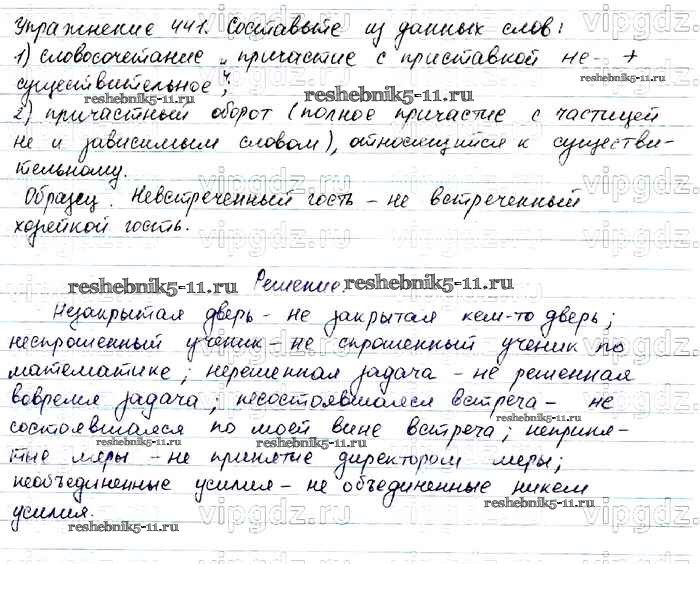 Упражнение 441. Составьте из данных слов:
1) словосочетание „ причастие с приставкой не- +
существительное “;
reshebnik5-11.ru
reshebnik5-11.ru
reshebnik5-11.ru
2) причастный оборот (полное причастие с частицей
не и зависимым словом), относящийся к существи-
тельному.
Образец. Невстреченный гость – не встреченный
хозяйкой гость.
reshebnik5-11.ru
Решение.
reshebnik5-11.ru
Незакрытая дверь – не закрытая кем-то дверь;
неспрошенный ученик – не спрошенный ученик по
математике; нерешенная задача – не решенная
вовремя задача; несостоявшаяся встреча – не
состоявшаяся по моей вине встреча; неприня-
reshebnik5-11.ru
reshebnik5-11.ru
reshebnik5-11.ru
тые меры – не принятие директором меры;
необъединенные усилия – не объединенные никем
усилия.
reshebnik5-11.ru
reshebnik5-11.ru
vipgdz.ru
vipgdz.ru
vipgdz.ru